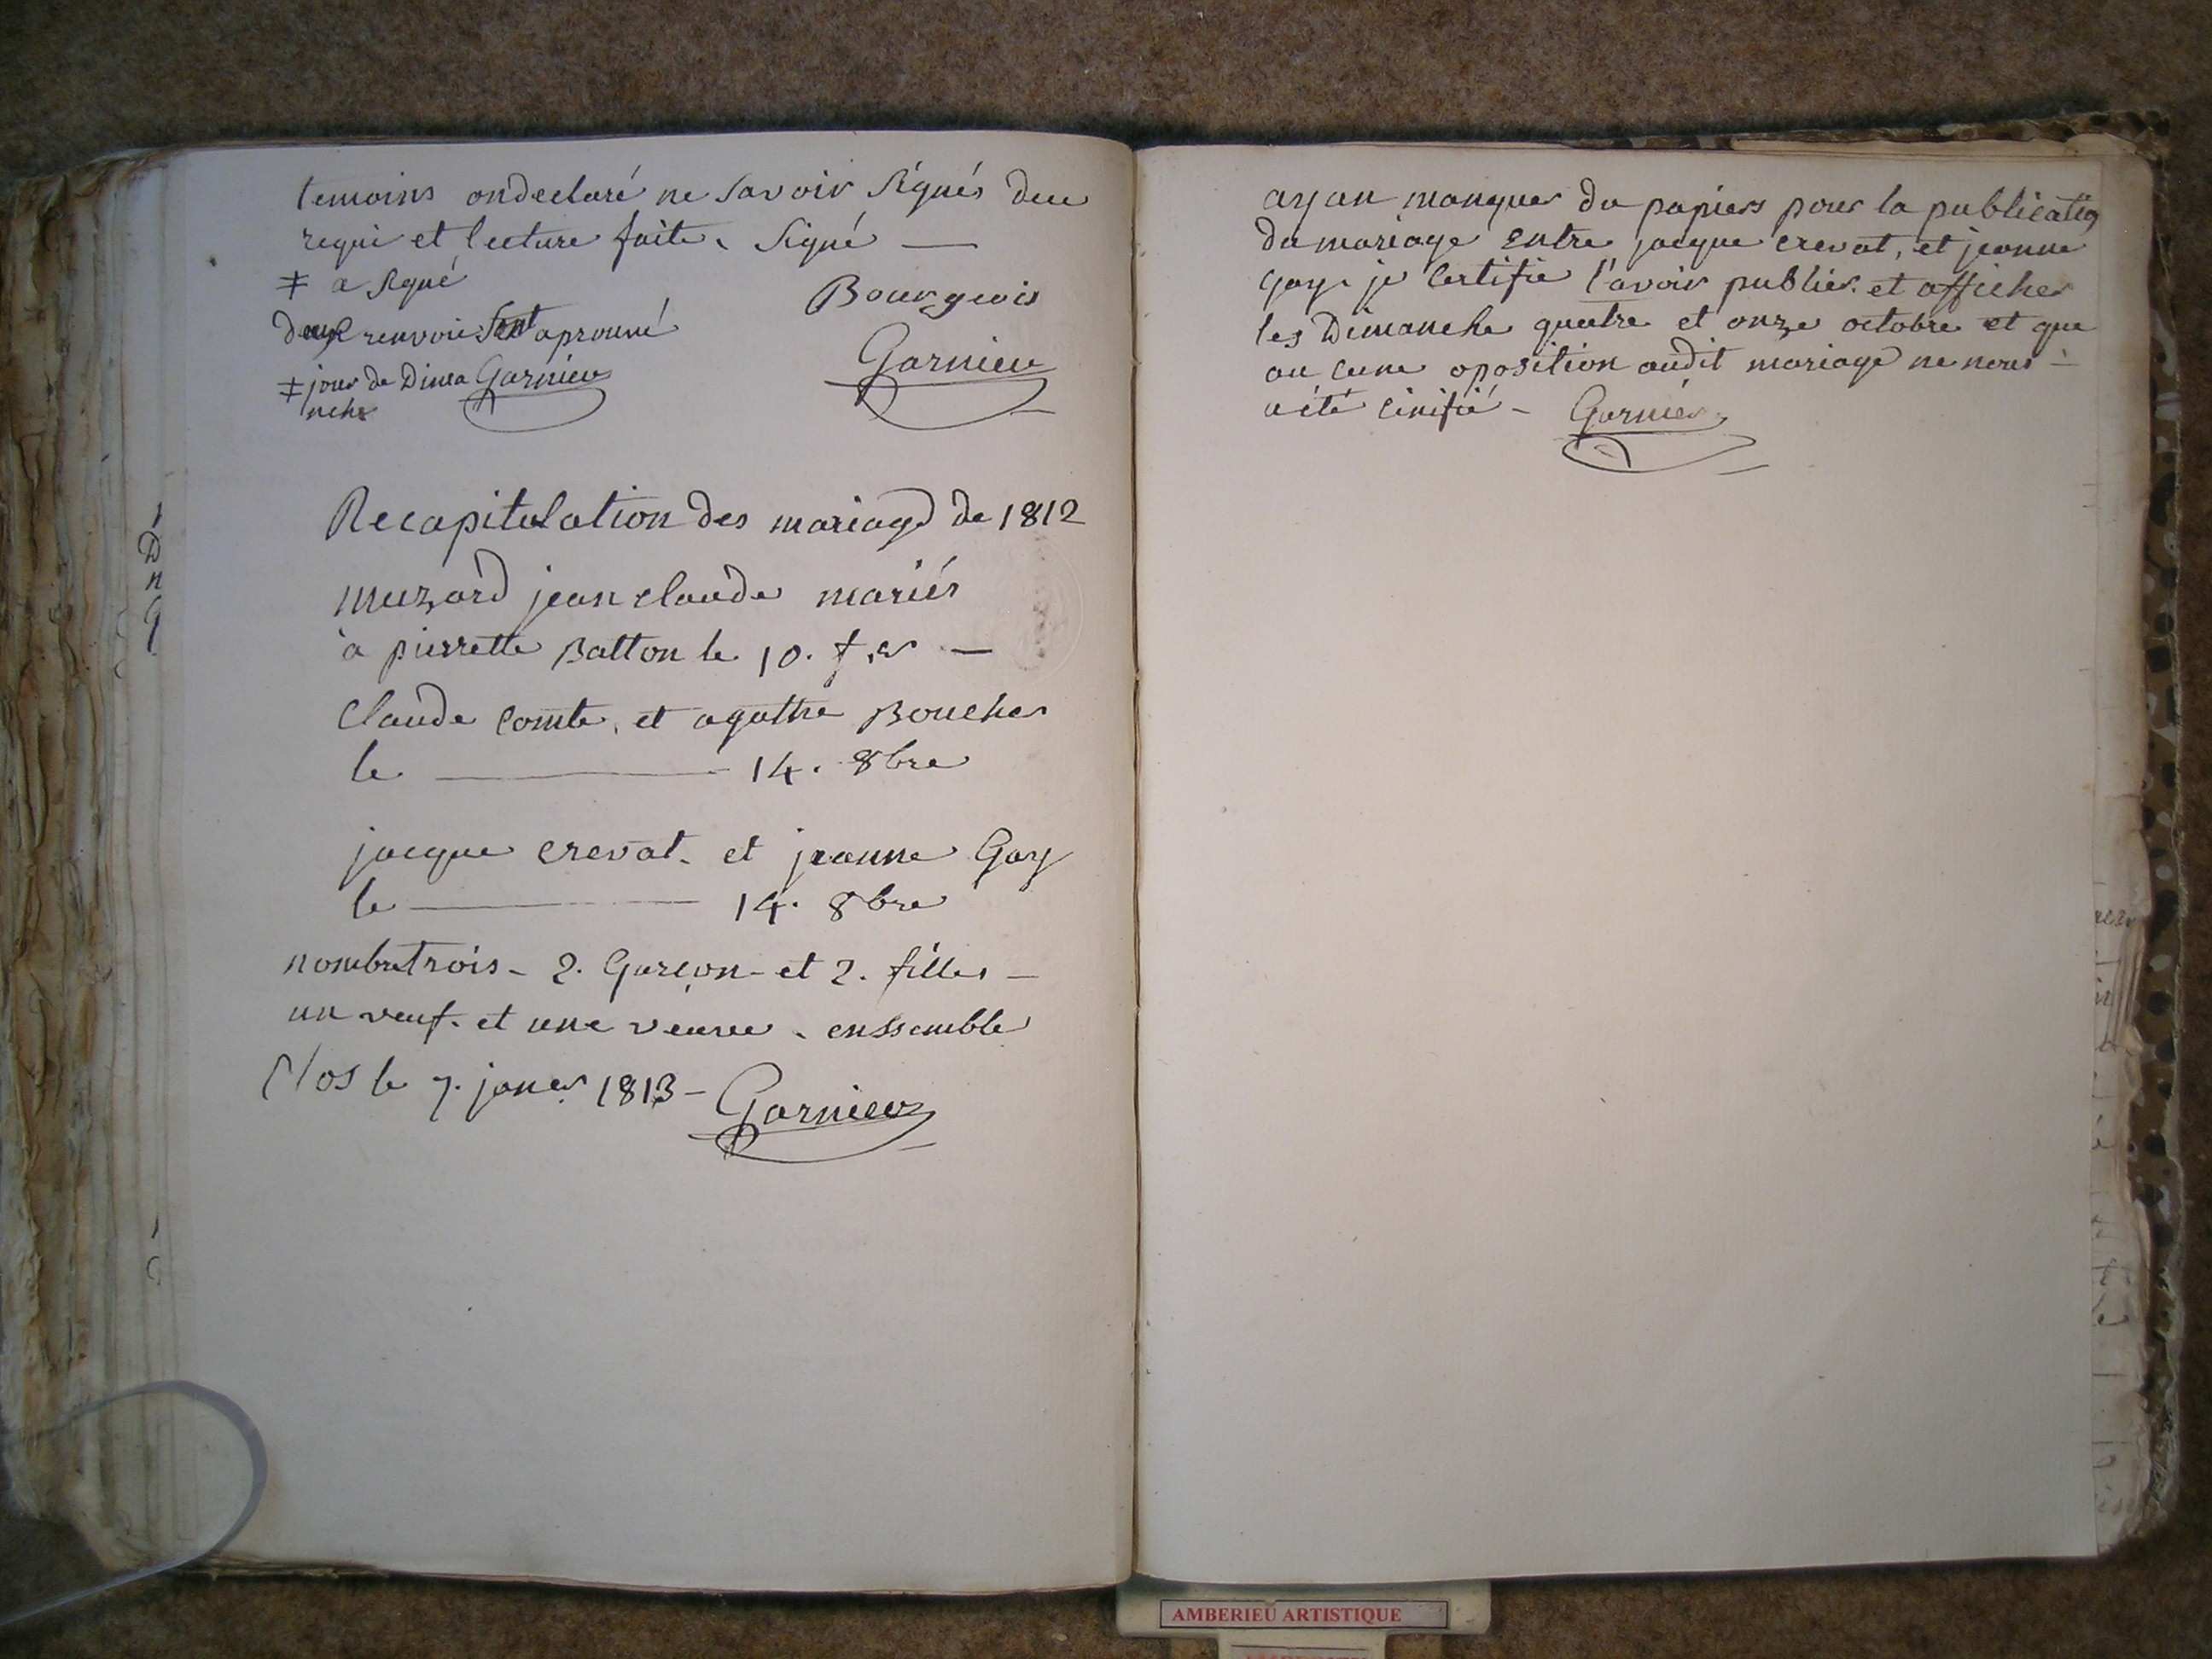 temoins ondeclaré ne savoir signés deu
requi et lecture faite. signé —
‡ a signé
Bourgeois
deux renvoie sont aprouvé
Garnier
‡ jour de Dima Garnier
nche
Recapitulation des mariage de 1812
muzard jean claude mariés
à pierrette Batton le 10. f.er —
Claude Comte, et agathe Boucher
le — 14. 8bre
jacque crevat. et jeanne Gay
le — 14. 8bre
nombre trois - 2. Garçon - et 2. filles —
un veuf. et une veuve. enssemble
Clos le 7. janer 1813 - Garnier
ayan manquer du papiers pour la publication
du mariage entre jacque crevat, et jeanne
gay. je certifie l'avoir publier. et afficher
les Dimanche quatre et onze octobre et que
au cune oposition audit mariage ne nous -
a été cinifié - Garnier
AMBERIEU ARTISTIQUE